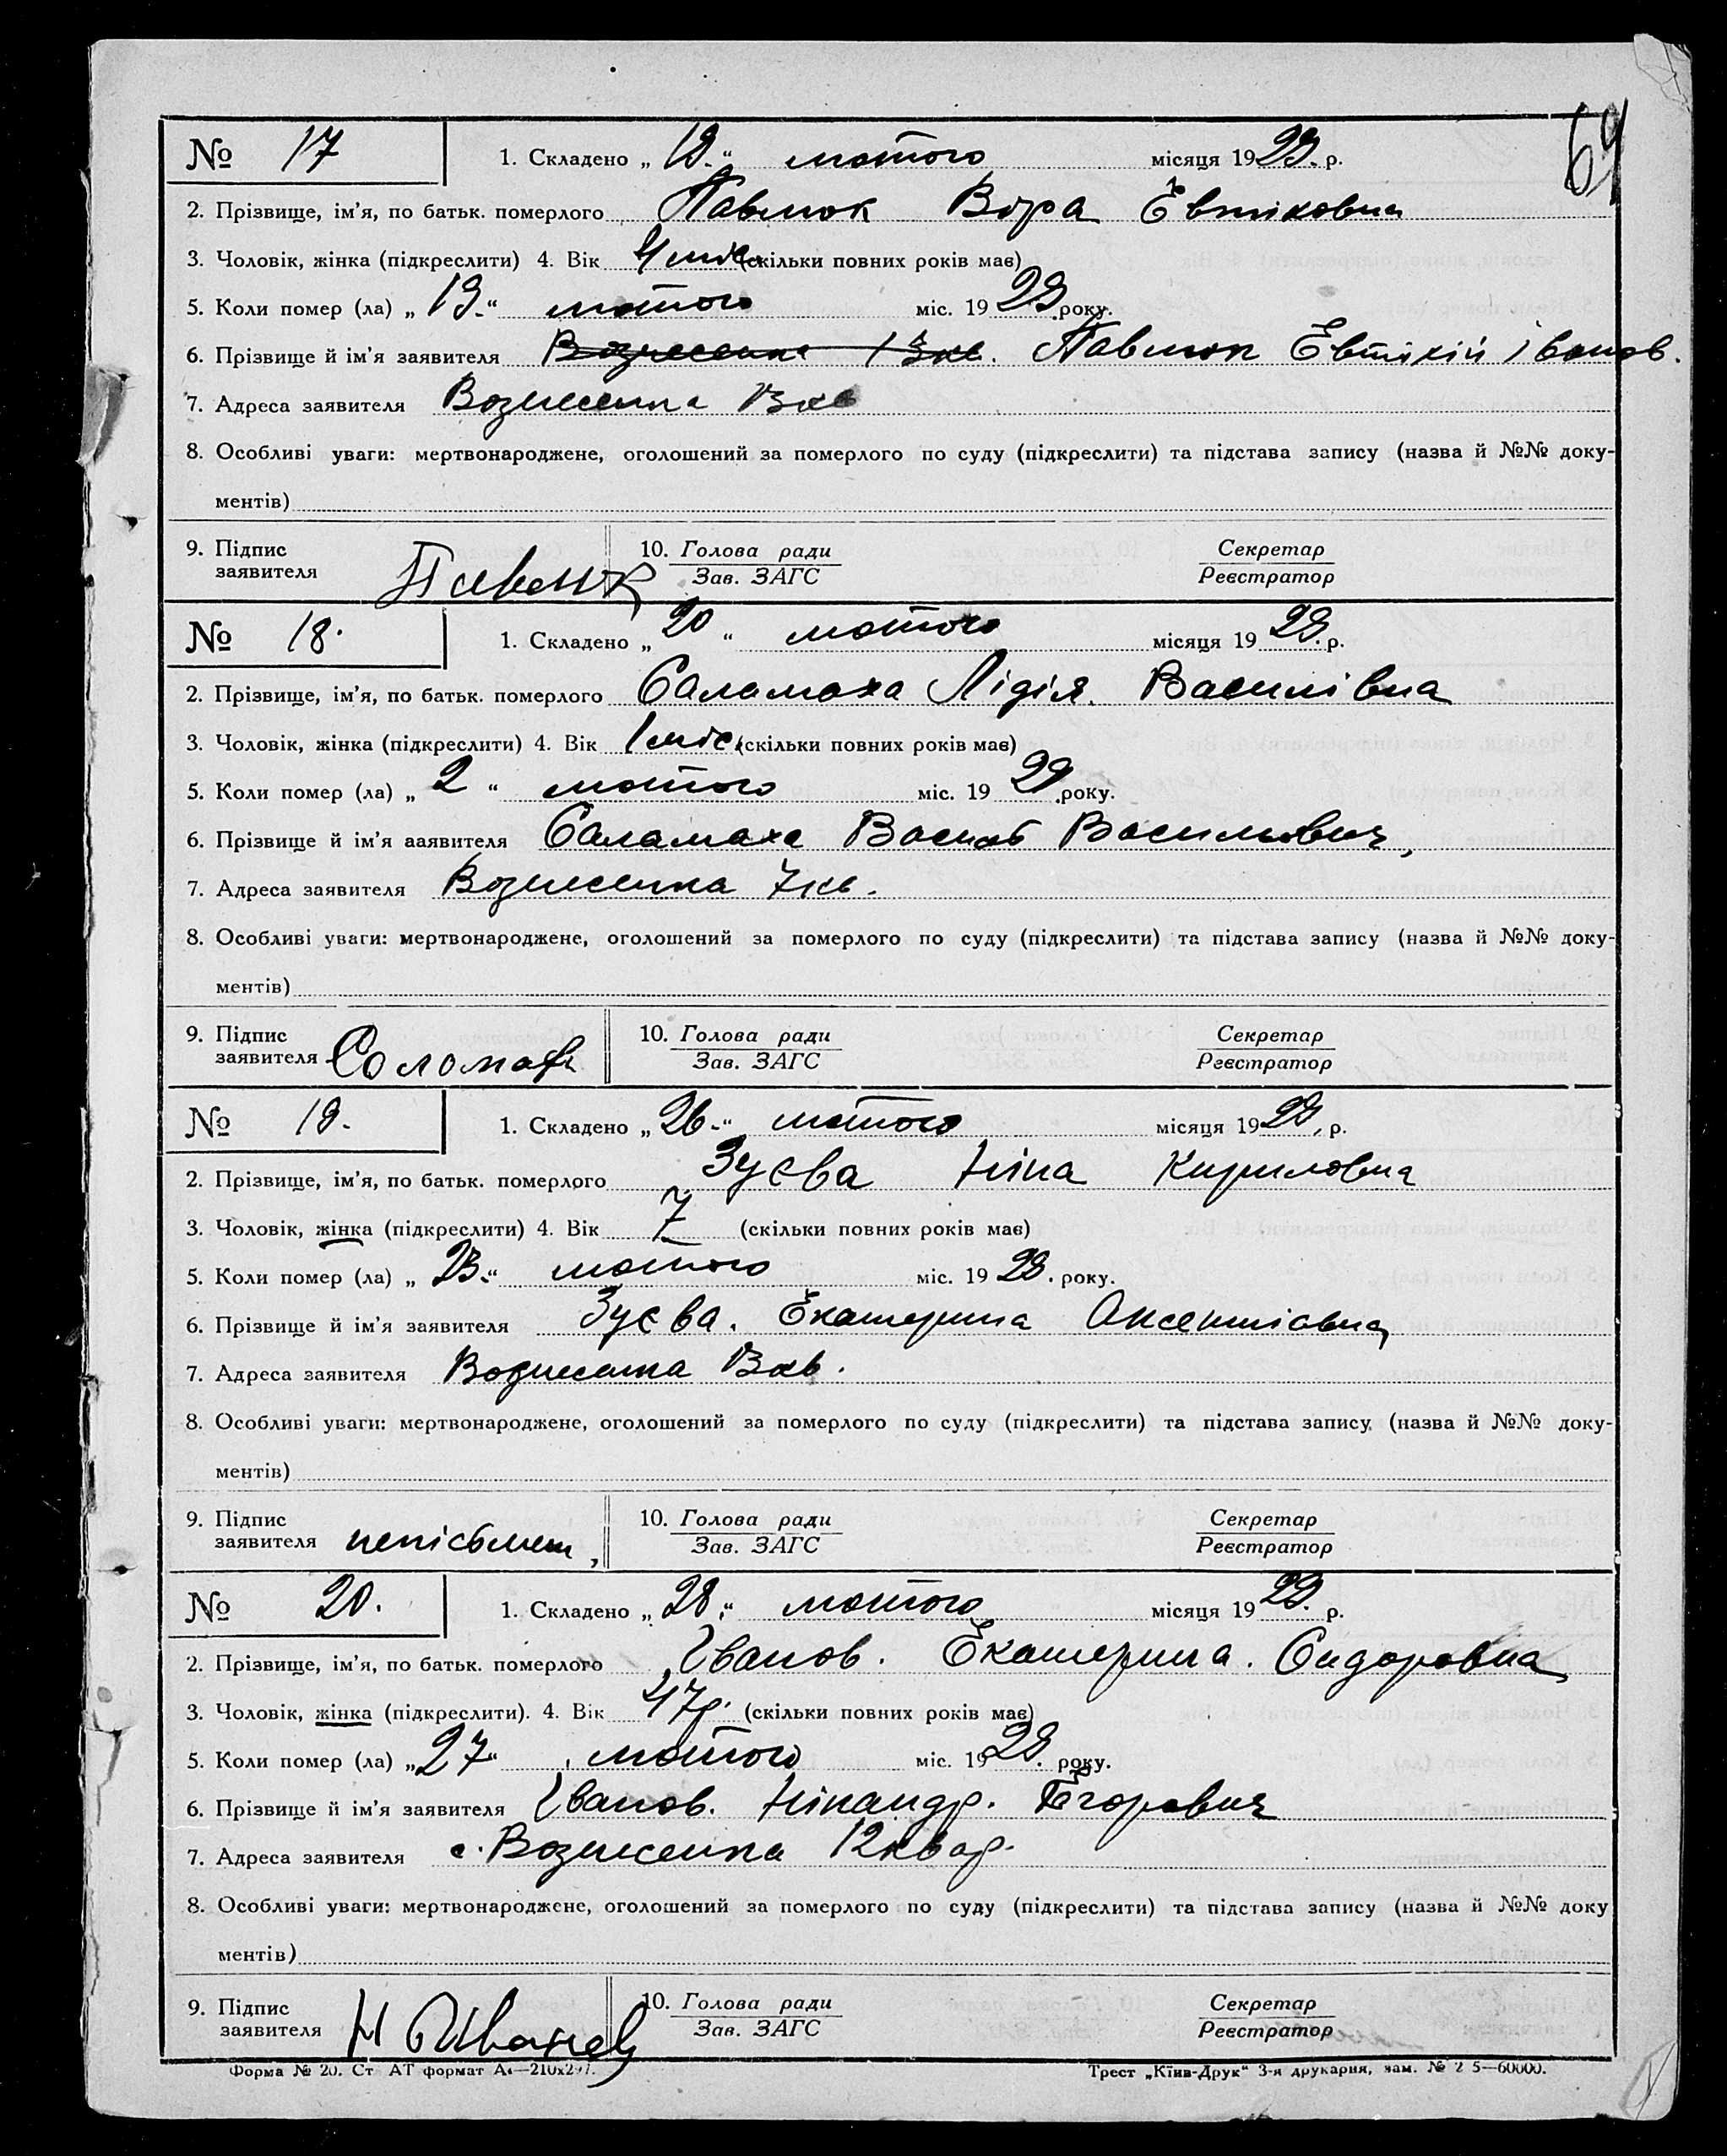 69
№ 17 1. Складено „ 19. “ лютого місяця 1929. р.
2. Прізвище, ім’я, по батьк. померлого Павлюк Віра Евтіховна
3. Чоловік, жінка (підкреслити) 4. Вік 4 міс. (скільки повних років має)
5. Коли помер (ла) „ 19. “ лютого міс. 1929 року.
6. Прізвище й ім’я заявителя Вознесенка 13кв. Павлюк Евтіхій Іванов.
7. Адреса заявителя Вознесенка 13кв
8. Особливі уваги: мертвонароджене, оголошений за померлого по суду (підкреслити) та підстава запису (назва й №№ доку-
ментів)
9. Підпис заявителя Павлюк 10. Голова ради Секретар
Зав. ЗАГС Реєстратор
№ 18. 1. Складено „ 20 “ лютого місяця 1929. р.
2. Прізвище, ім’я, по батьк. померлого Саламаха Лідія. Василівна
3. Чоловік, жінка (підкреслити) 4. Вік 1 міс. (скільки повних років має)
5. Коли помер (ла) „ 2 “ лютого міс. 1929. року.
6. Прізвище й ім’я заявителя Саламаха Василь Васильович,
7. Адреса заявителя Вознесенка 7кв.
8. Особливі уваги: мертвонароджене, оголошений за померлого по суду (підкреслити) та підстава запису (назва й №№ доку-
ментів)
9. Підпис заявителя Соломаха 10. Голова ради Секретар
Зав. ЗАГС Реєстратор
№ 19. 1. Складено „ 26. “ лютого місяця 1929. р.
2. Прізвище, ім’я, по батьк. померлого Зуєва Ніна Кириловна
3. Чоловік, жінка (підкреслити) 4. Вік 7 (скільки повних років має)
5. Коли помер (ла) „ 23. “ лютого міс. 1929. року.
6. Прізвище й ім’я заявителя Зуєва. Екатерина Аксентіовна
7. Адреса заявителя Вознесенка 13кв.
8. Особливі уваги: мертвонароджене, оголошений за померлого по суду (підкреслити) та підстава запису (назва й №№ доку-
ментів)
9. Підпис заявителя непісьмен, 10. Голова ради Секретар
Зав. ЗАГС Реєстратор
№ 20. 1. Складено „ 28. “ лютого місяця 1929. р.
2. Прізвище, ім’я, по батьк. померлого Іванов. Екатерина. Сидоровна
3. Чоловік, жінка (підкреслити). 4. Вік 47р. (скільки повних років має)
5. Коли помер (ла) „ 27 “ лютого міс. 1929. року.
6. Прізвище й ім’я заявителя Іванов. Нікандр. Егорович
7. Адреса заявителя с. Вознесенка 12квар.
8. Особливі уваги: мертвонароджене, оголошений за померлого по суду (підкреслити) та підстава запису (назва й №№ доку
ментів)
9. Підпис заявителя Н Иванов 10. Голова ради Секретар
Зав. ЗАГС Реєстратор
Форма № 20. Ст АТ формат А4—210х297. Трест „Київ-Друк“ 3-я друкарня, зам. № 2 5—60000.